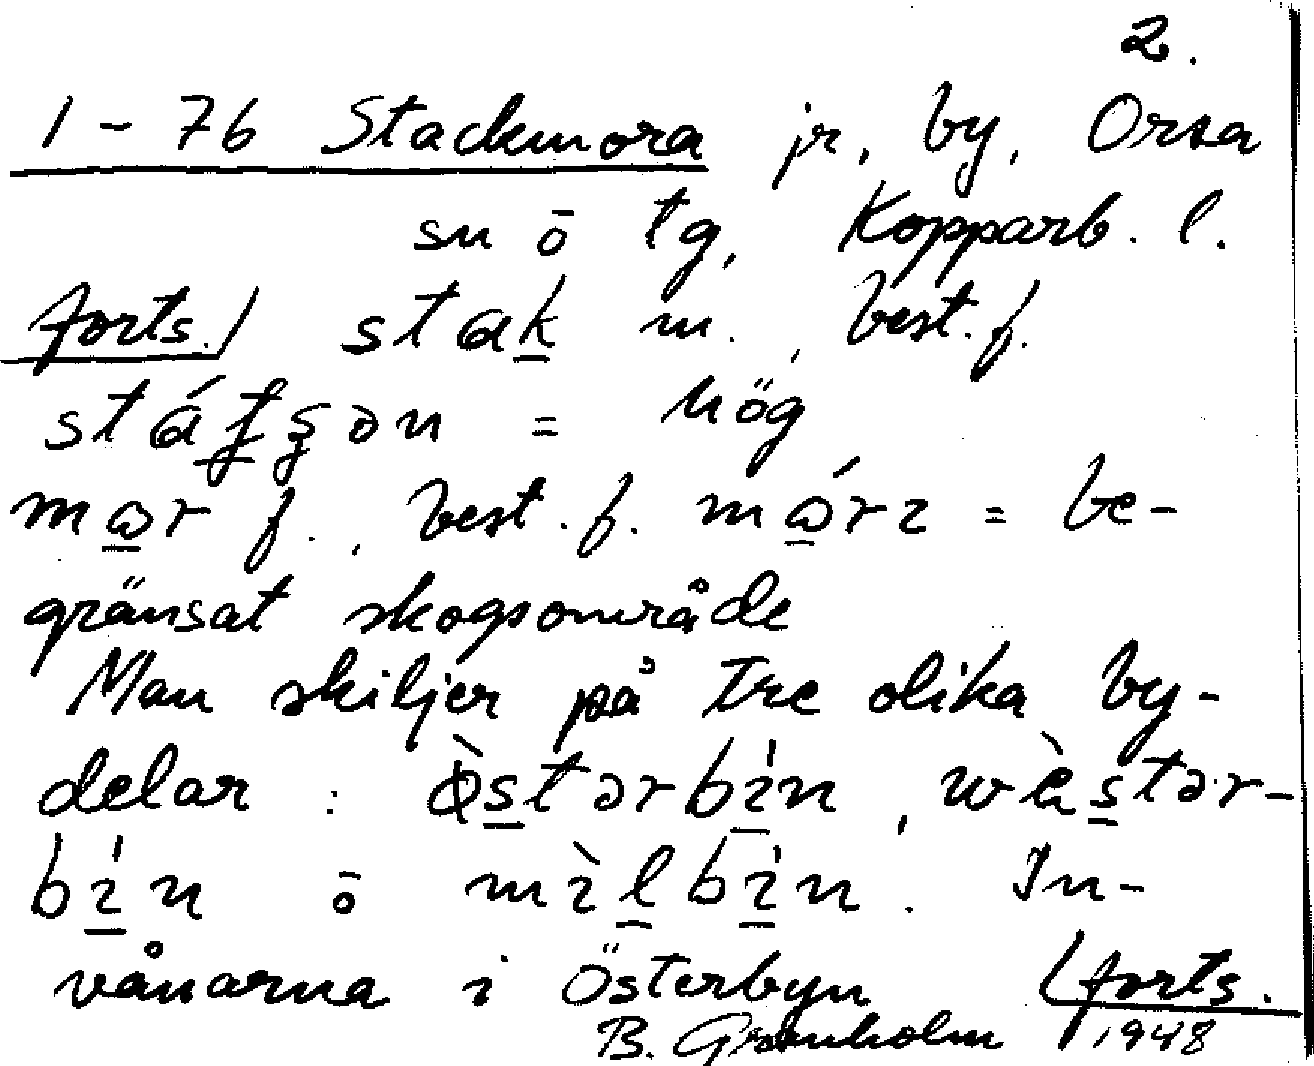 2.
1 - 76 Stackmora jr, by, Orsa
sn ō tg, Kopparb. l.
forts./ stak m., best. f.
= hög
mar f., best. f. = be-
gränsat skogsområde
Man skiljer på tre olika by-
delar: östərbin, wästər-
bin ō milbin. In-
vånarna i Österbyn (forts.
B. Granholm 1948